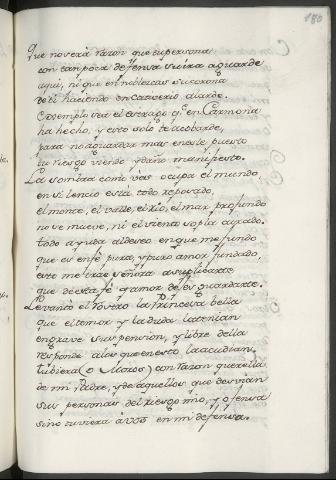 180
que no será razon que tu persona
con tan poca defensa se aguarde
aqui, ni que en nobleza su corona
de ti haciendo en cautiverio alarde.
Exemplo sea el estrago q.e en Carmona
ha hecho, y esto solo te acobarde,
para no aguardar mas en este puesto
tu riesgo viendo y daño manifiesto.
La sombra como ves ocupa el mundo,
en silencio está todo reposado,
el monte, el valle, el rio, el mar profundo
no se mueve, ni el viento sopla airado.
todo ayuda al deseo en que me fundo
que es en fé pura, y puro amor fundado,
esto me trae señora a suplicarte
que de esta fé y amor
Levantó el rostro la Princesa bella
que el temor y la duda la tenian
en grave suspension, y libre della
responde a los que en esto la acudian,
tubiera (o Moros) con razon querella
de mi Padre, y de aquellos que devian
sus personas del riesgo mio, y ofensa
sino tuviera á vos en mi defensa.